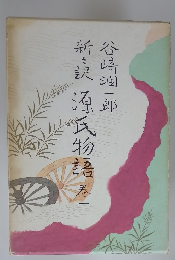 谷崎潤一郎
新々訳
源氏物語
巻一